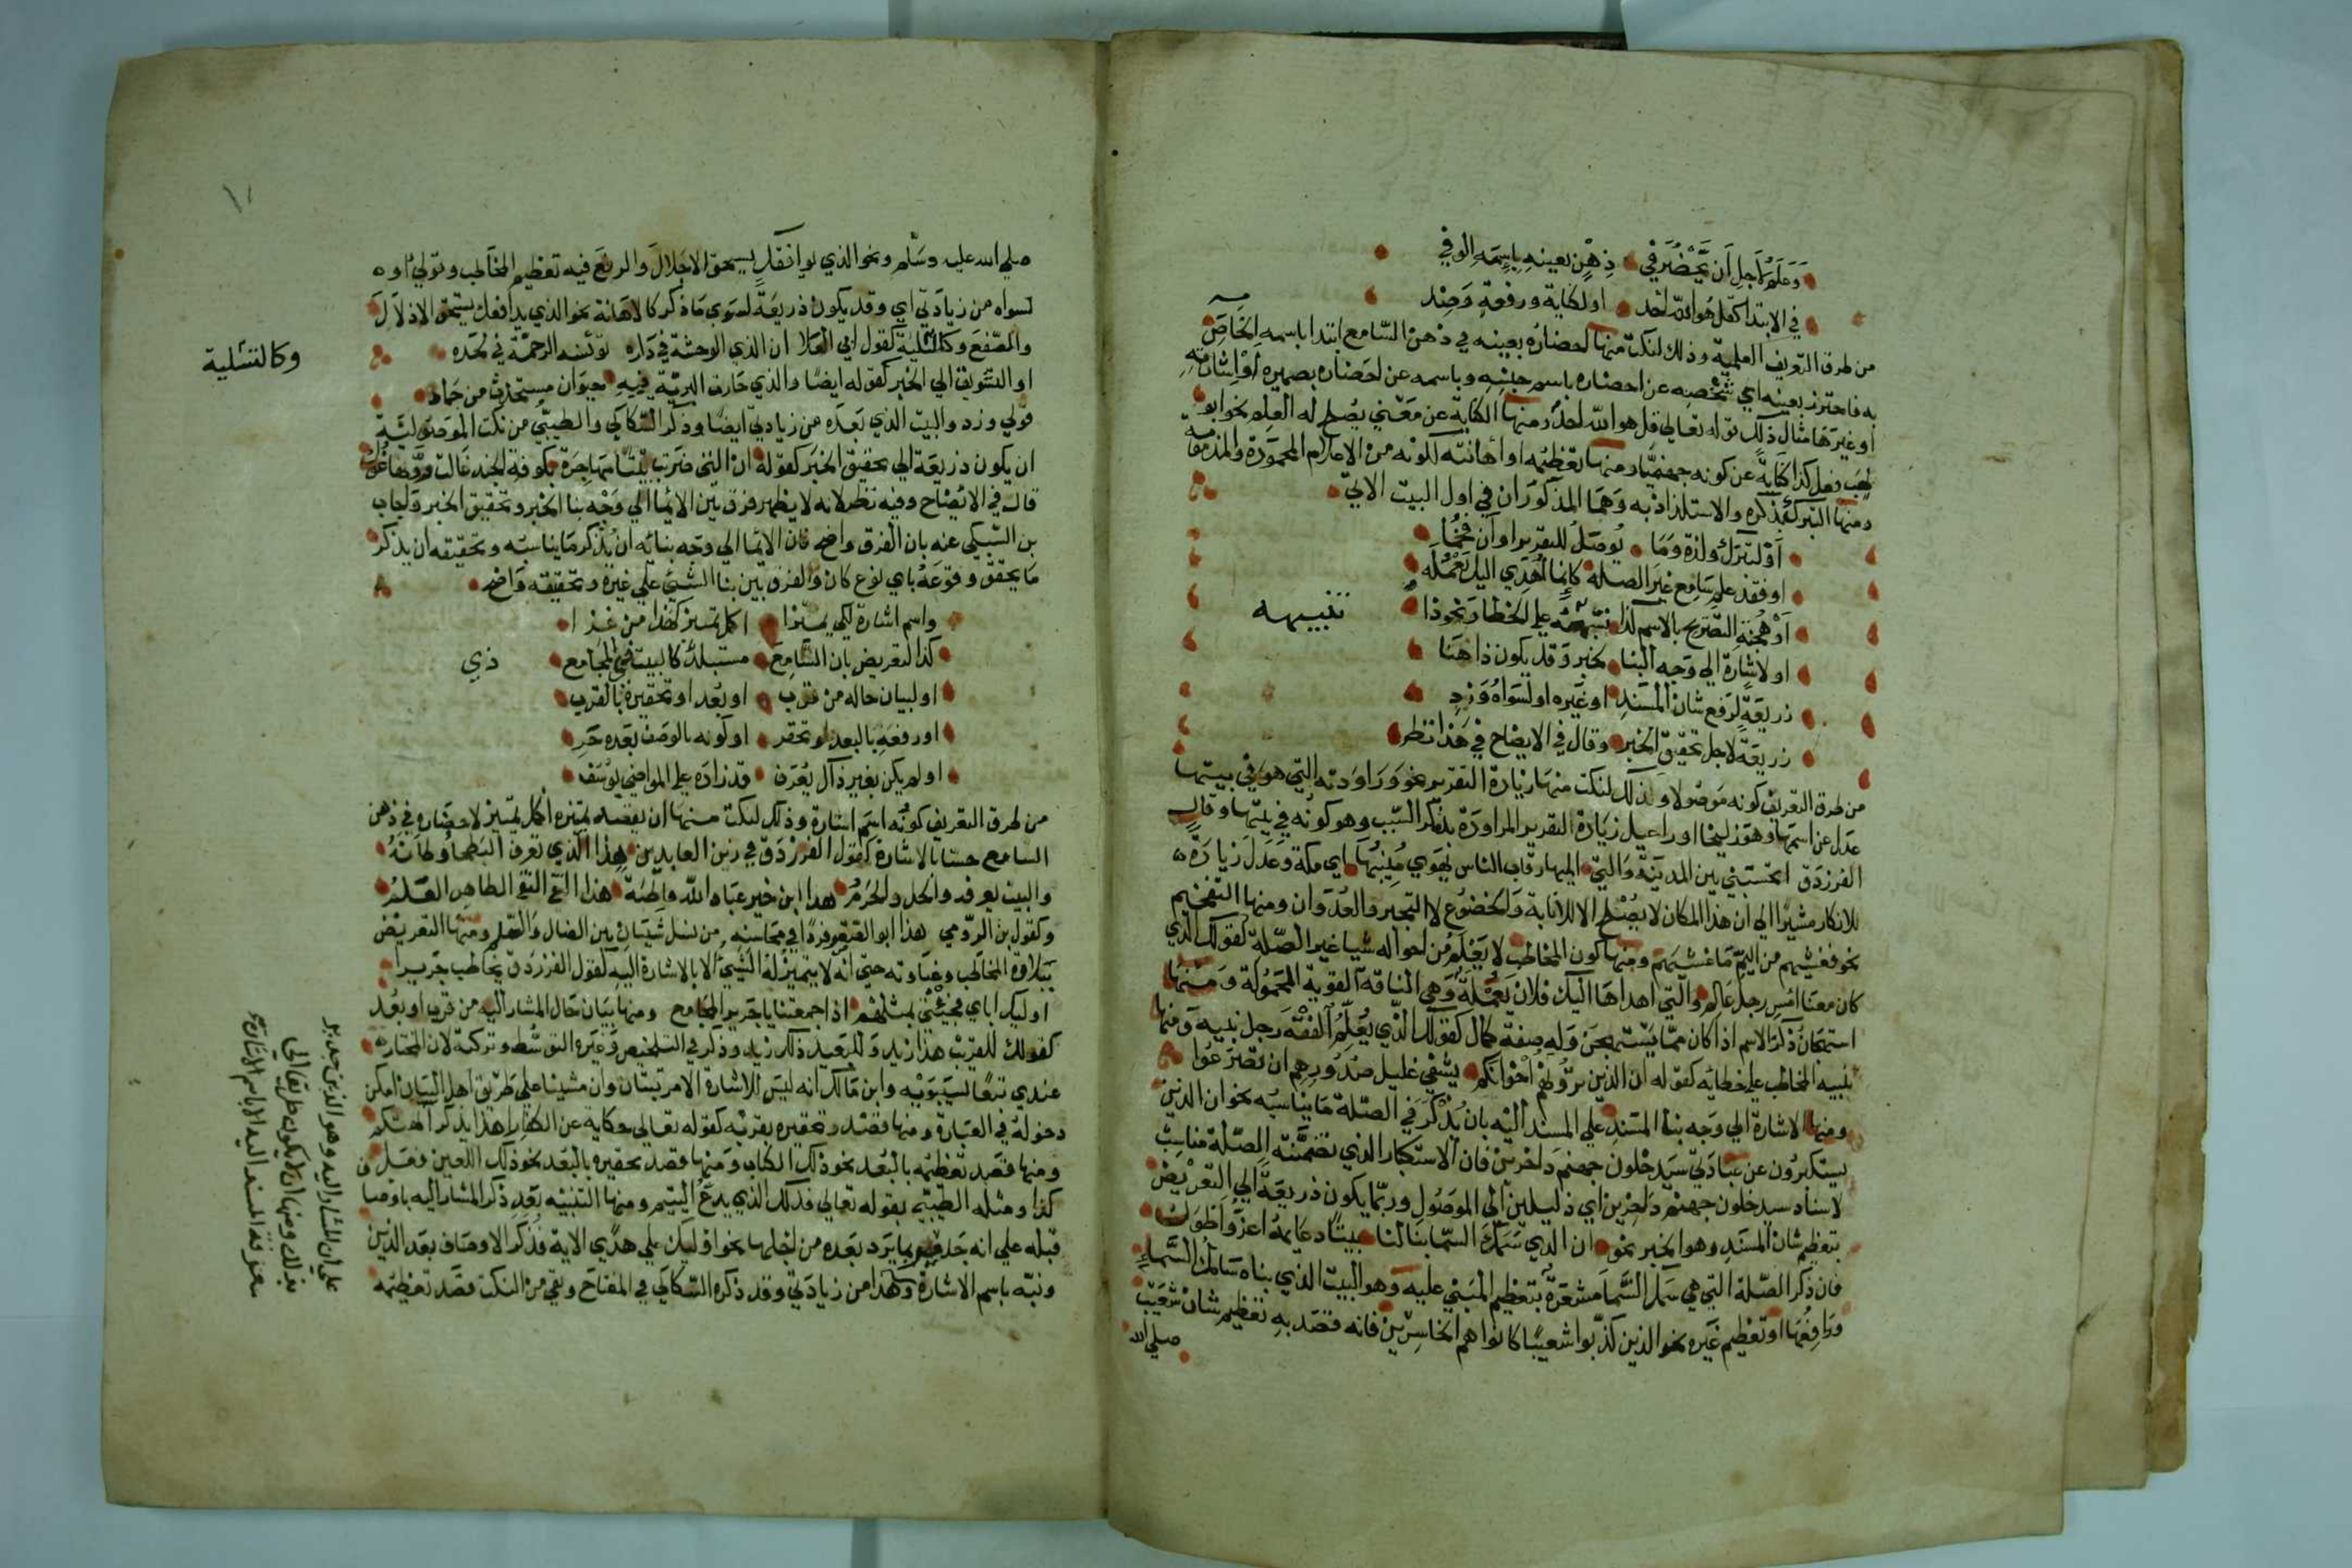 وعلم لاجل ان يحضر في ذهن بعينه باسمه الوفي
في الابتدا كقل هو الله احد او لكناية ورفعة وضد
من طرق التعريف العلمية وذلك لنكت منها احضاره بعينه في ذهن السامع ابتدا باسمه الخاص
به فاحترز بعينه اي شخصه عن احضاره باسم جنسه وباسمه عن احضاره بضميره او اشارته
او غيرها مثال ذلك قوله تعالي قل هو الله احد ومنها الكناية عن معني يصلح له العلم نحو ابو
لهب فعل كذا كناية عن كونه جهنميا ومنها تعظيمه او اهانته لكونه من الاعلام المحمودة والمذمومة
ومنها التبرك بذكره والاستلذاذ به وهما المذكوران في اول البيت الاتي
او لتبرك ولذة وما يوصل للتقرير او ان فخما
او فقد علم سامع غير الصله كانما اهدي اليك يعمله
او هجنة التصريح بالاسم كذا تنبيهه علي الخطا ونحو ذا
تنبيهه
او لاشارة الي وجه البنا لخبر وقد يكون ذا هنا
ذريعة لرفع شان المسند او غيره او لسواه وزد
ذريعة لاجل تحقيق الخبر وقال في الايضاح في هذا نظر
من طرق التعريف كونه موصولا وذلك لنكت منها زيادة التقرير نحو وراودته التي هو في بيتها
عدل عن اسمها وهو زليخا او راعيل زيادة لتقرير المراودة بذكر السبب وهو كونه في بيتها وقال
الفرزدق اتحسبني بين المدينة والتي اليها رقاب الناس يهوي منيبها اي مكة وعدل زيادة
للانكار مشيرا الي ان هذا المكان لا يصلح الا للانابة والخضوع لا التجبر والعدوان ومنها التفخيم
نحو فغشيهم من اليم ما غشيهم ومنها كون المخاطب لا يعلم من احواله شيا غير الصلة كقولك الذي
كان معنا امس رجل عالم والتي اهداها اليك فلان يعملة وهي الناقة القوية المحمولة ومنها
استهجان ذكر الاسم اذا كان مما يستهجن وله صفة كمال كقولك الذي يعلم الفقه رجل نبيه ومنها
تنبيه المخاطب علي خطائه كقوله ان الذين ترونهم اخوانكم يشفي غليل صدورهم ان تصرعوا
ومنها الاشارة الي وجه بناء المسند علي المسند اليه بان يذكر في الصلة ما يناسبه نحو ان الذين
يستكبرون عن عبادتي سيدخلون جهنم داخرين فان الاستكبار الذي تضمنته الصلة مناسب
لاسناد سيدخلون جهنم داخرين اي ذليلين الي الموصول وربما يكون ذريعة الي التعريض
بتعظيم شان المسند وهو الخبر نحو ان الذي سمك السما بنا لنا بيتا دعائمه اعز واطول
فان ذكر الصلة التي هي سمك السما مشعرة بتعظيم المبني عليه وهو البيت الذي بناه سامك السماء
ورافعها او تعظيم غيره نحو الذين كذبوا شعيبا كانوا هم الخاسرين فانه قصد به تعظيم شان شعيب
صلي الله
صلي الله عليه وسلم ونحو الذي يوافقك يستحق الاجلال والرفع فيه تعظيم المخاطب وقولي او
لسواه من زيادتي اي وقد يكون ذريعة لسوي ما ذكر كالاهانة نحو الذي يرافقك يستحق الاذلال
والصفع وكالتسلية كقول ابي العلا ان الذي الوحشة في داره تؤنسه الرحمة في لحده
وكالتسلية
او التشويق الي الخبر كقوله ايضا والذي حارت البرية فيه حيوان مستحدث من جماد
قولي وزد والبيت الذي بعده من زيادتي ايضا وذكر السكاكي والطيبي من نكت الموصولية
ان يكون ذريعة الي تحقيق الخبر كقوله ان التي ضربت بيتا مهاجرة بكوفة الجند غالت ودها غول
قال في الايضاح وفيه نظر لانه لا يظهر فرق بين الايما الي وجه بنا الخبر وتحقيق الخبر واجاب
بن السبكي عنه بان الفرق واضح فان الايما الي وجه بنائه ان يذكر ما يناسبه وتحقيقه ان يذكر
ما يحقق وقوعه باي نوع كان والفرق بين بنا الشيئ علي غيره وتحقيقه واضح
واسم اشارة لكي يميزا اكمل تمييز كهذا من غزا
كذا لتعريض بان السامع مستبلد كالبيت في المجامع
ذي
او لبيان حاله من قرب او بعد او تحقيره بالقرب
او رفعه بالبعد او تحقر او كونه بالوصف بعده حر
او لم يكن بغير ذاك يعرف قد زاده علي المواضي يوسف
من طرق التعريف كونه اسم اشارة وذلك لنكت منها ان يقصد تميزه اكمل تمييز لاحضاره في ذهن
السامع حسا بالاشارة كقول الفرزدق في زين العابدين هذا الذي تعرف البطحا وطاته
والبيت يعرفه والحل والحرم هذا ابن خير عباد الله فاطمة هذا التقي النقي الطاهر العلم
وكقول بن الرومي هذا ابو الصقر فردا في محاسنه من نسل شيبان بين الضال والسلم ومنها التعريض
ببلادة المخاطب وغباوته حتي انه لا يتميز له الشيئ الا بالاشارة اليه كقول الفرزدق يخاطب جريرا
اوليك اباي فجئني بمثلهم اذا جمعتنا يا جرير المجامع ومنها بيان حال المشار اليه من قرب او بعد
كقولك للقريب هذا زيد وللبعيد ذلك زيد وذكر في التلخيص وغيره التوسط وتركته لان المختار
عندي تبعا لسيبويه وابن مالك انه ليس للاشارة الا مرتبتان وان مشينا علي طريق اهل البيان امكن
دخوله في العبارة ومنها قصد تحقيره بقربه كقوله تعالي حكاية عن الكفار اهذا الذي يذكر الهتكم
ومنها قصد تعظيمه بالبعد نحو ذلك الكتاب ومنها قصد تحقيره بالبعد نحو ذلك اللعين فعل
كذا ومثله الطيبي بقوله تعالي فذلك الذي يدع اليتيم ومنها التنبيه بعد ذكر المشار اليه باوصاف
قبله علي انه جدير بما يرد بعده من اجلها نحو اوليك علي هدي الاية فذكر الاوصاف بعد الذين
ونبه باسم الاشارة وهذا من زيادتي وقد ذكره السكاكي في المفتاح وبقي من النكت قصد تعظيمه
علي ان المشار اليه وهو الذين جدير
بذلك ومنها ان لا يكون طريق الي
معرفة المسند اليه الا باسم الاشارة